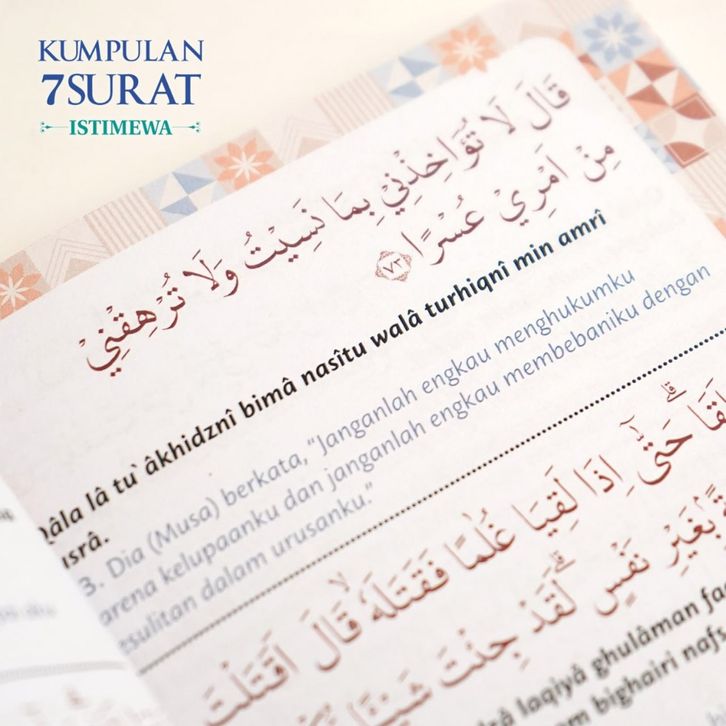 KUMPULAN
7SURAT
ISTIMEWA
قَالَ لَا تُؤَاخِذْنِيْ بِمَا نَسِيْتُ وَلَا تُرْهِقْنِيْ
مِنْ اَمْرِيْ عُسْرًا ﴿٧٣﴾
lâ tu`âkhidznî bimâ nasîtu walâ turhiqnî min amrî
3. Dia (Musa) berkata, “Janganlah engkau menghukumku
kelupaanku dan janganlah engkau membebaniku dengan
dalam urusanku.”
حَتّٰىٓ اِذَا لَقِيَا غُلٰمًا فَقَتَلَهٗ قَالَ اَقَتَلْتَ
بِغَيْرِ نَفْسٍ لَقَدْ جِئْتَ شَيْـًٔا
laqiyâ ghulâman
bighairi